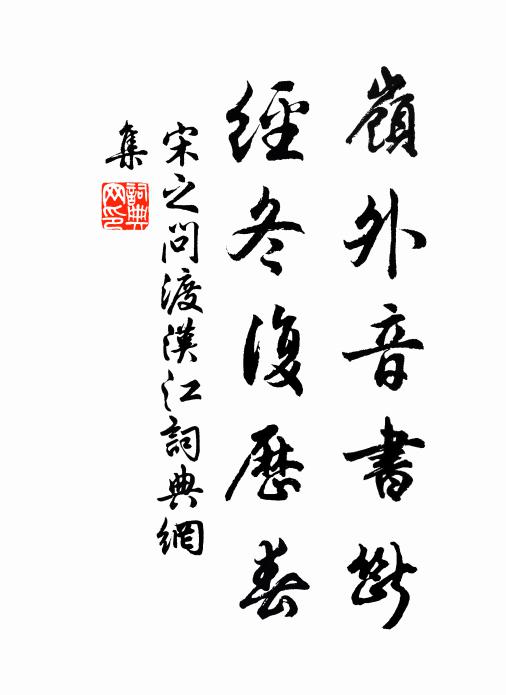 嶺外音書斷
經冬復歷春
宋之问渡漢江詞典網
集
詞典
网印